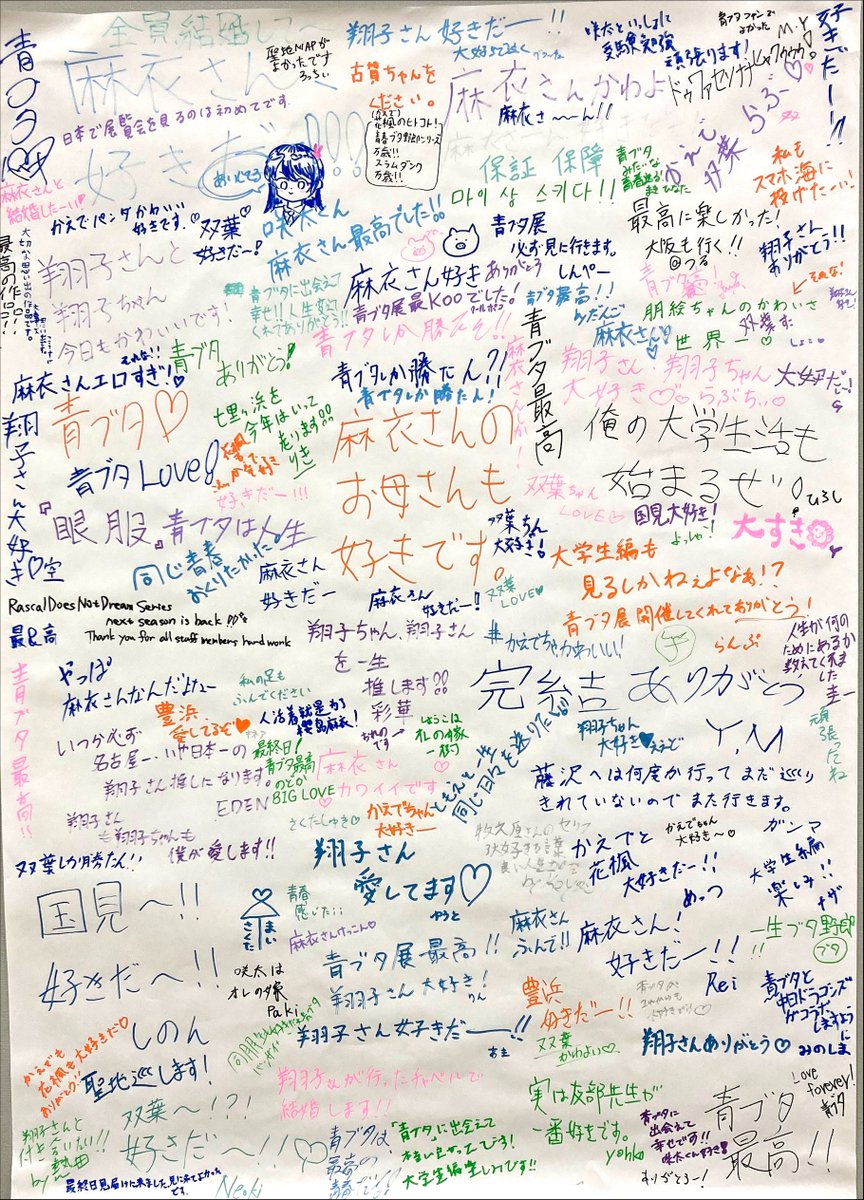 全員結婚して〜
翔子さん好きだー!!
青ブタ
麻衣さん
好きだ!!!
聖地MAPが
よかったです
日本で展覧会を見るのは初めてです。
古賀ちゃんを
ください。
(かえで)
花楓のヒトコト!
青春ブタ野郎シリーズ
万歳!!
スラムダンク
万歳!!
麻衣さんかわよ
麻衣さ〜ん!!
咲太といっしょに
受験勉強
頑張ります!
青ブタファンで
よかった
M.Y
好きだー!!
保証 保障
마이상 スキダ!!
かえで
双葉
らぶー
私も
スマホ海に
投げたーい!
麻衣さんと
結婚したーい♡
かえでパンダかわいい
好きです。
あいしてる
双葉
好きだ〜!
咲太さん
麻衣さん最高でした!!
青ブタ展
必ず見に行きます。
しんぺー
最高に楽しかった!
大阪も行く!!
@つる
翔子さん
ありがとう!!
最高の作品!!
翔子さんと
翔子ちゃん
今日もかわいいです、
青ブタに出会えて
幸せ!!人生変えて
くれてありがとう!!
麻衣さん好き
ありがとう
青ブタ展最Kooでした!
青ブタ最高!!
朋絵ちゃんのかわいさ
世界一
麻衣さん♡
それな!
青ブタしか勝たん!!
青ブタ
ありがとう!
それな!!
麻衣さんエロすぎ!♡
青ブタしか勝たん?!
青ブタしか勝たん!
麻衣さんが!
青ブタ最高
翔子さん・翔子ちゃん
大好き♡♡らぶちぃ♡
大好だー!
翔子さん大好き♡空
青ブタ♡
青ブタLOVE!
七里ヶ浜を
今年はいって
走ります!!
りき
好きだー!!!
麻衣さんの
お母さんも
好きです。
俺の大学生活も
始まるぜ!
ひろし
双葉ちゃん
LOVE♡
国見大好き!
よっしゃ!
大すき
『眼服』
青ブタは人生
同じ青春
おくりたかった。
麻衣さん
好きだー
双葉ちゃん
大好き!
大学生編も
見るしかねぇよなぁ!?
麻衣さん
好きだー!
双葉
LOVE♡
青ブタ展開催してくれてありがとう!
らんぷ
Rascal Does Not Dream Series
next season is back
Thank you for all staff members hard work
最&高
翔子ちゃん、翔子さん
を一生
推します!!
彩華
#かえでちゃんかわいい!
人生が何の
ためにあるか
教えてくれま
した
圭一
青ブタ最高!!
やっぱ
麻衣さんなんだよなー
私の足も
ふんでください
豊浜
愛してるぞ♥
人活着就是为了
樱岛麻衣!
いつか必ず
名古屋一、いや日本一の
翔子さん推しになります。
EDEN
翔子さん
も翔子ちゃんも
僕が愛します!!
最終日!
青ブタ最高
のどか
BIG LOVE
しょうこは
オレの嫁
おれのです→
麻衣さん
♡カワイイです
かえでちゃん
大好きー
ともえと一生
同じ日々を送りたい!!
完結ありがとう
Y.M
翔子ちゃん
大好き♥
頑張ってね
藤沢へは何度か行ってまだ巡り
きれていないのでまた行きます。
双葉しか勝たん!!
翔子さん
愛してます♡
牧之原さんのセリフ
大好きな言葉
かえでと
花楓
大好きだー!!
めっつ
かえでちゃん
大好き〜♡
ガンマ
大学生編
楽しみ!!
ナザ
国見へ!!
好きだへ!!
さくた
まい
青春
感じた!!
麻衣さんけっこん♡
青ブタ展最高!!
麻衣さん
ふんで!!
麻衣さん!
好きだー!!
Rei
一生ブタ野郎!!
ブタ
咲太は
オレの嫁
Paki
翔子さん 大好き!
りん
豊浜
好きだー!!
双葉
かわよい♡
翔子さん好きだー!!
翔子さんありがとう♡
青ブタと
中日ドラゴンズ
みのしま
かえでも
花楓も大好きだ♡
ありがとう!!
しのん
聖地巡します!
翔子さんが行ったチャペルで
結婚します!!
翔子さんと
付き合いたい!!
双葉〜!?!
好きだ〜!!
青ブタは、
最高の
「青ブタ」に出会えて
本当によかったです!
大学生編楽しみです!!
実は友部先生が
一番好きです。
yohko
青ブタに
出会えて
幸せです!!
咲太くん好き!
ありがとうー!
青ブタ
最高!!
Love
forever!
青ブタ
最終日見届けに来ました 見に来てよかった
です。
Neoki